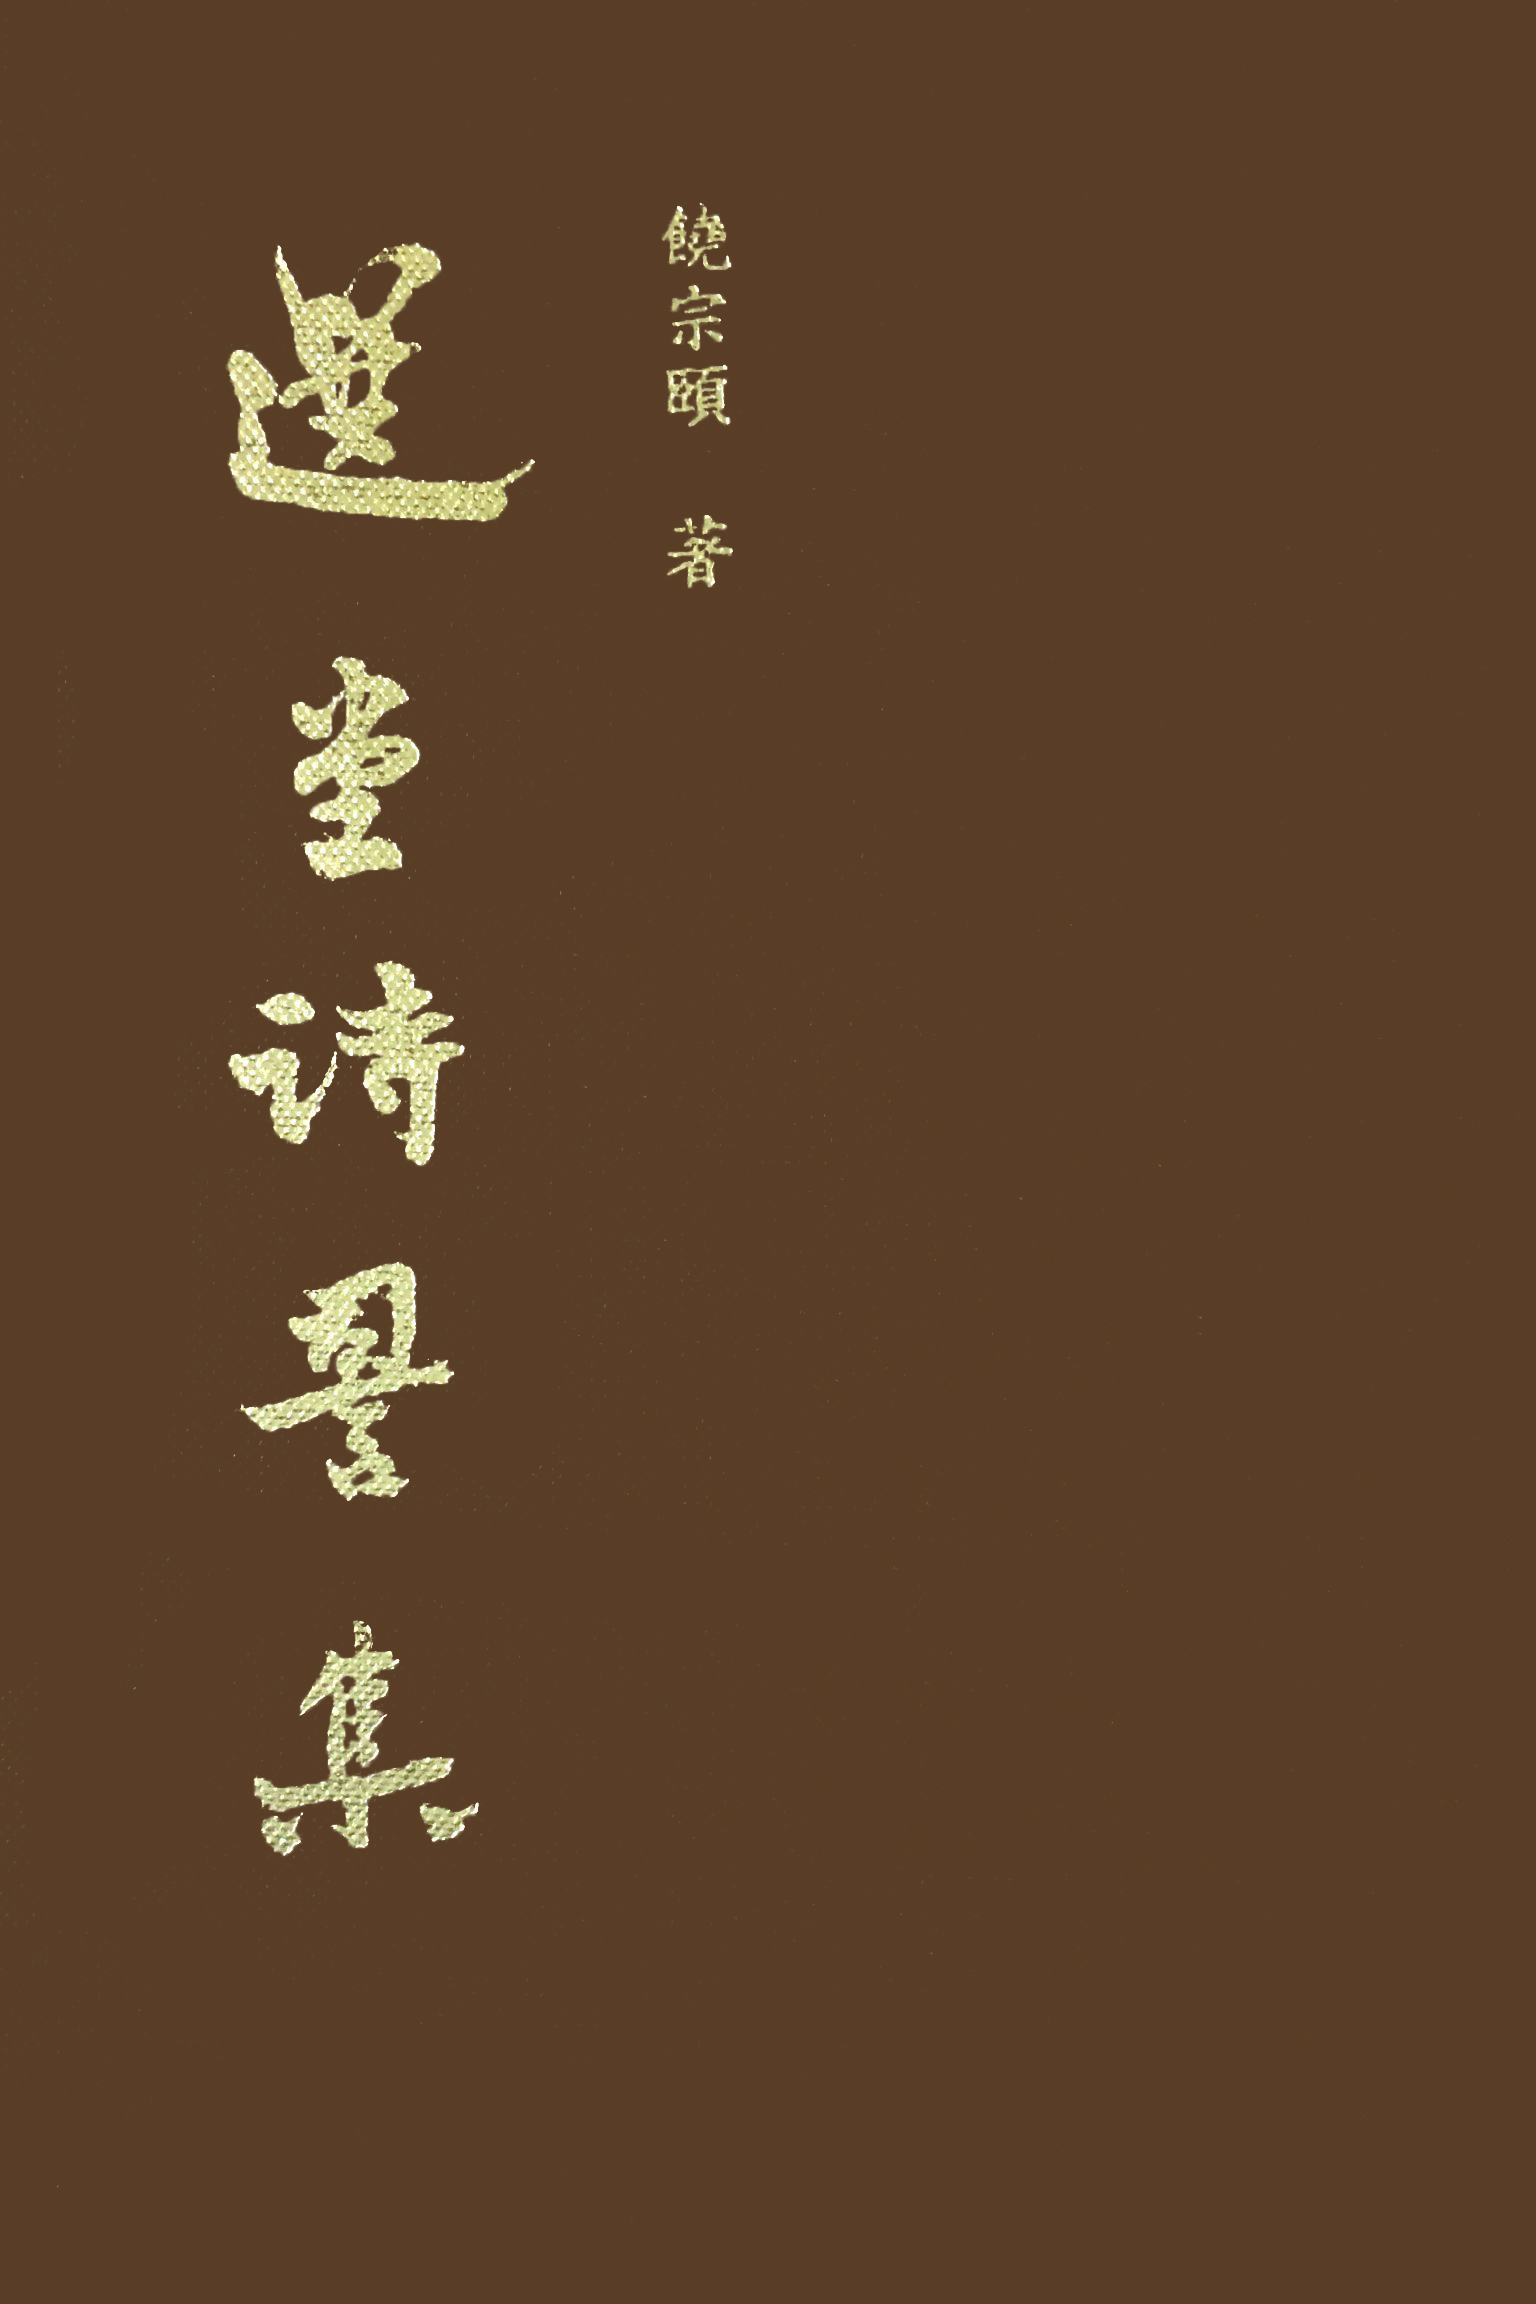 饒宗頤 著
選堂詩詞集